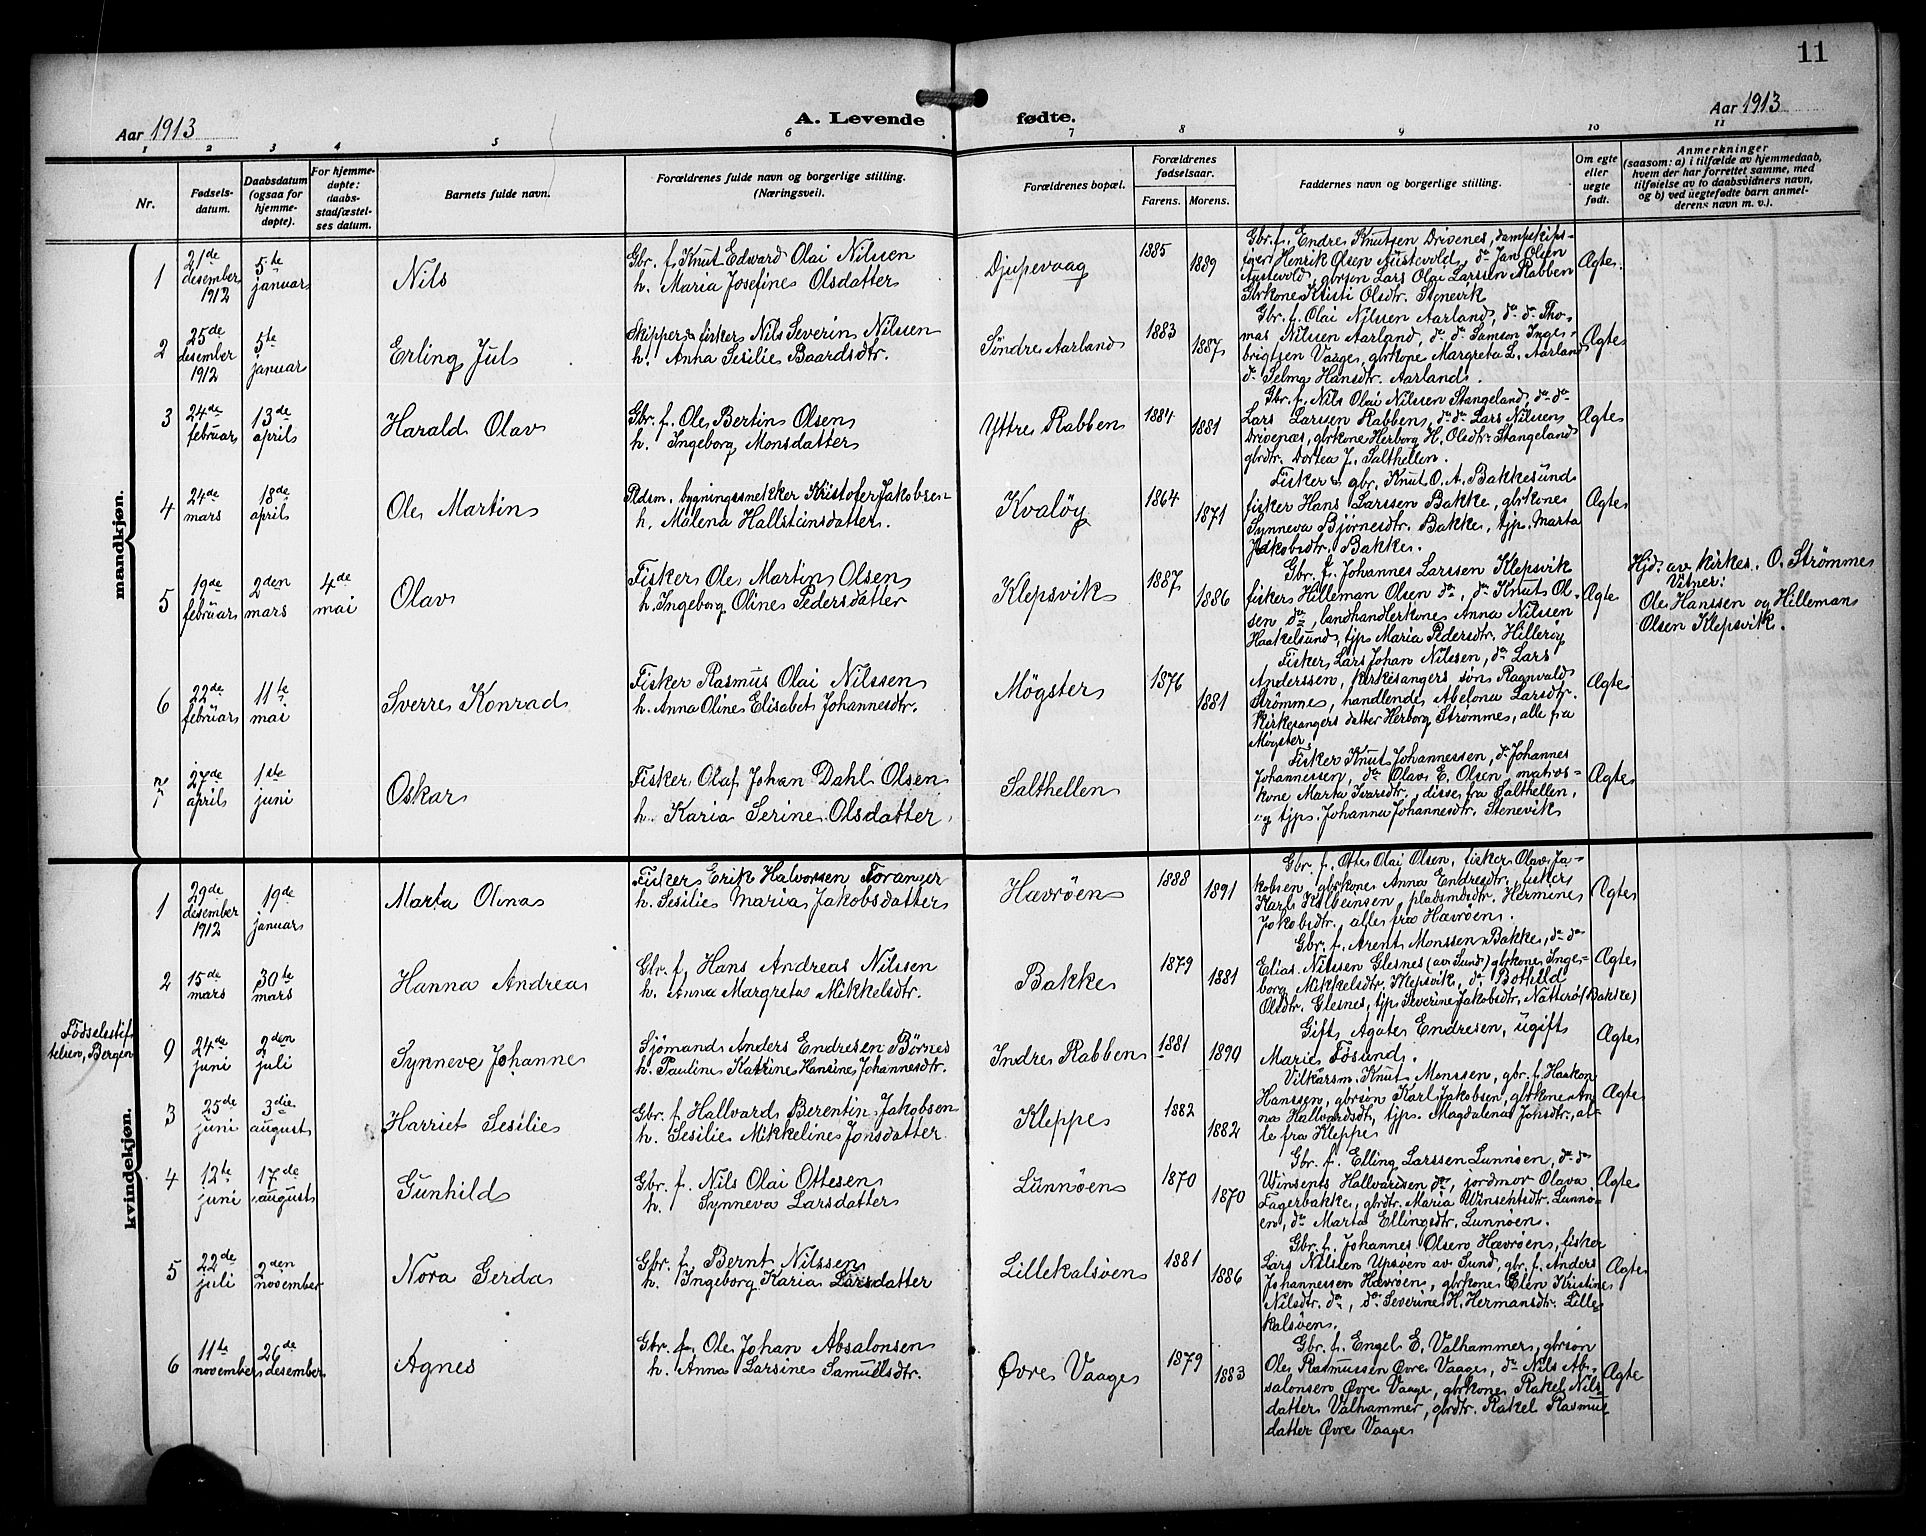 11
Aar 1913
A. Levende fødte.
Aar 1913
1 2 3 4 5 6 7 8 9 10 11
Nr.
Fødsels-
datum.
Daabsdatum
(ogsaa for
hjemme-
døpte).
For hjemme-
døpte:
daabs-
stadfæstel-
ses datum.
Barnets fulde navn.
Forældrenes fulde navn og borgerlige stilling.
(Næringsvei).
Forældrenes bopæl.
Forældrenes
fødselsaar.
Farens. Morens.
Faddernes navn og borgerlig stilling.
Om egte
eller
uegte
født.
Anmerkninger
(saasom: a) i tilfælde av hjemmedaab,
hvem der har forrettet samme, med
tilføielse av to daabsvidners navn,
og b) ved uegtefødte barn anmel-
derens navn m. v.).
mandkjøn.
1
21de
desember
1912
5te
januar
Nils
Gbr. f. Knut Edward Olai Nilssen
h. Maria Josefine Olsdatter
Djupevaag
1885
1889
Gbr. f. Endre Knutsen Drivenes, dampskips-
eier Henrik Olsen Austevold, do Jan Olsen
Austevold, gbrsøn Lars Olai Larssen Rabben
Gbrkone Kristi Olsdtr. Stenevik
Ægte
2
25de
desember
1912
5te
januar
Erling Jul
Skipper & fisker Nils Severin Nilssen
h. Anna Sesilie Baardsdtr.
Søndre Aarland
1883
1887
Gbr. f. Olai Nilssen Aarland, do do Tho-
mas Nilssen Aarland, do do Samson Inge-
brigtsen Vaage, gbrkone Margreta L. Aarland
do Selma Hansdtr. Aarland.
Ægte
3
24de
februar
13de
april
Harald Olav
Gbr. f. Ole Bertin Olsen
h. Ingeborg Monsdatter
Yttre Rabben
1884
1881
Gbr. f. Nils Olai Nilssen Stangeland, do do
Lars Larssen Rabben, do do Lars Nilssen
Drivenæs, gbrkone Herborg H. Olsdtr. Stangeland
gbrdtr. Dortea J. Salthellen.
Ægte
4
24de
mars
18de
april
Ole Martin
Pldsm. bygningssnekker Kristofer Jakobsen
h. Malena Hallsteinsdatter.
Kvaløy
1864
1871
Fisker & gbr. Knut O. A. Bakkesund
fisker Hans Larssen Bakke, gbrkone
Synneva Bjørnesdtr. Bakke, tjp. Marta
Jakobsdtr. Bakke.
Ægte
5
19de
februar
2den
mars
4de
mai
Olav
Fisker Ole Martin Olsen
h. Ingeborg Oline Pedersdatter
Klepsvik
1887
1886
Gbr. f. Johannes Larssen Klepsvik
fisker Hilleman Olsen do, do Knut Ol-
sen do, landhandlerkone Anna Nilssen
Haakelsund, tjp. Maria Pedersdtr. Hillerøy
Ægte
Hjd. av kirkes. O. Strømme
Vitner:
Ole Hanssen og Hilleman
Olsen Klepsvik.
6
22de
februar
11te
mai
Sverre Konrad
Fisker Rasmus Olai Nilssen
h. Anna Oline Elisabet Johannesdtr.
Møgster
1876
1881
Fisker Lars Johan Nilssen, do Lars
Anderssen, kirkesangers søn Ragnvald
Strømme, handlende Abelona Larsdtr.
Kirkesangers datter Herborg Strømme, alle fra
Møgster
Ægte
7
27de
april
1ste
juni
Oskar
Fisker Olaf Johan Dahl Olsen
h. Karia Serine Olsdatter.
Salthellen
Fisker Knut Johannessen, do Johannes
Johannessen, do Olav E. Olsen, matros-
kone Marta Ivarsdtr, disse fra Salthellen,
og tjp. Johanna Johannesdtr. Stenevik
Ægte
kvindekjøn.
1
29de
desember
1912
19de
januar
Marta Olina
Fisker Erik Halvorsen Foranger
h. Sesilie Maria Jakobsdatter
Hævrøen
1888
1891
Gbr. f. Otte Olai Olsen, fisker Olav Ja-
kobsen, gbrkone Anna Endresdtr. fisker
Karl, pladsmdtr. Hermine
Jakobsdtr., alle fra Hævrøen.
Ægte
2
15de
mars
30te
mars
Hanna Andrea
Gbr. f. Hans Andreas Nilssen
h. Anna Margreta Mikkelsdtr.
Bakke
1879
1881
Gbr. f. Arent Monssen Bakke, do do
Elias Nilssen Glesnes (av Sund) gbrkone Inge-
borg Mikkelsdtr. Klepsvik, do Bothild
Olsdtr. Glesnes, tjp. Severine Jakobsdtr, Natterøy (Bakke)
Ægte
Fødselsstif-
telsen, Bergen
9
24de
juni
2den
juli
Synneve Johanne
Sjømand Anders Endresen Børnes
h. Pauline Katrine Hansine Johannesdtr.
Indre Rabben
1881
1890
Gift Agate Endresen, ugift
Marie Føsund.
Ægte
3
25de
juni
3die
august
Harriet Sesilie
Gbr. f. Hallvard Berentin Jakobsen
h. Sesilie Mikkeline Jonsdatter
Kleppe
1882
1882
Vilkårsm. Knut Monssen, gbr. f. Haakon
Hanssen, gbrsøn Karl Jakobsen, gbrkone An-
na Hallvardsdtr, tjp. Magdalena Jonsdtr, al-
le fra Kleppe
Ægte
4
12te
juni
17de
august
Gunhild
Gbr. f. Nils Olai Ottesen
h. Synneva Larsdatter
Lunnøen
1870
1870
Gbr. f. Elling Larssen Lunnøen, do do
Winsents Hallvardsen do, jordmor Olava
Fagerbakke, gbrdtr. Maria Winsentsdtr. Lunnø-
en, do Marta Ellingsdtr. Lunnøen.
Ægte
5
22de
juli
2den
november
Nora Gerda
Gbr. f. Bernt Nilssen
h. Ingeborg Karia Larsdatter
Lillekalsøen
1881
1886
Gbr. f. Johannes Olsen Hævrøen, fisker
Lars Nilssen Upsøen av Sund, gbr. f. Anders
Johannessen Hævrøen, gbrkone Elen Kristine
Nilsdtr. do, do Severine H. Hermansdtr. Lille-
kalsøen.
Ægte
6
11te
november
26de
desember
Agnes
Gbr. f. Ole Johan Absalonsen
h. Anna Larsine Samuelsdtr.
Øvre Vaage
1879
1883
Gbr. f. Engel E. Valhammer, gbrsøn
Ole Rasmussen Øvre Vaage, do Nils Ab-
salonsen Øvre Vaage, gbrkone Rakel Nils-
datter Valhammer, gbrdtr. Rakel Rasmus-
datter Øvre Vaage
Ægte